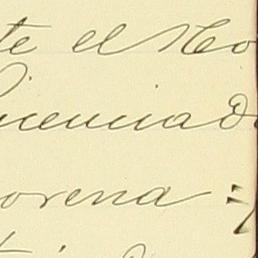 te el No
Licenciad
orena =